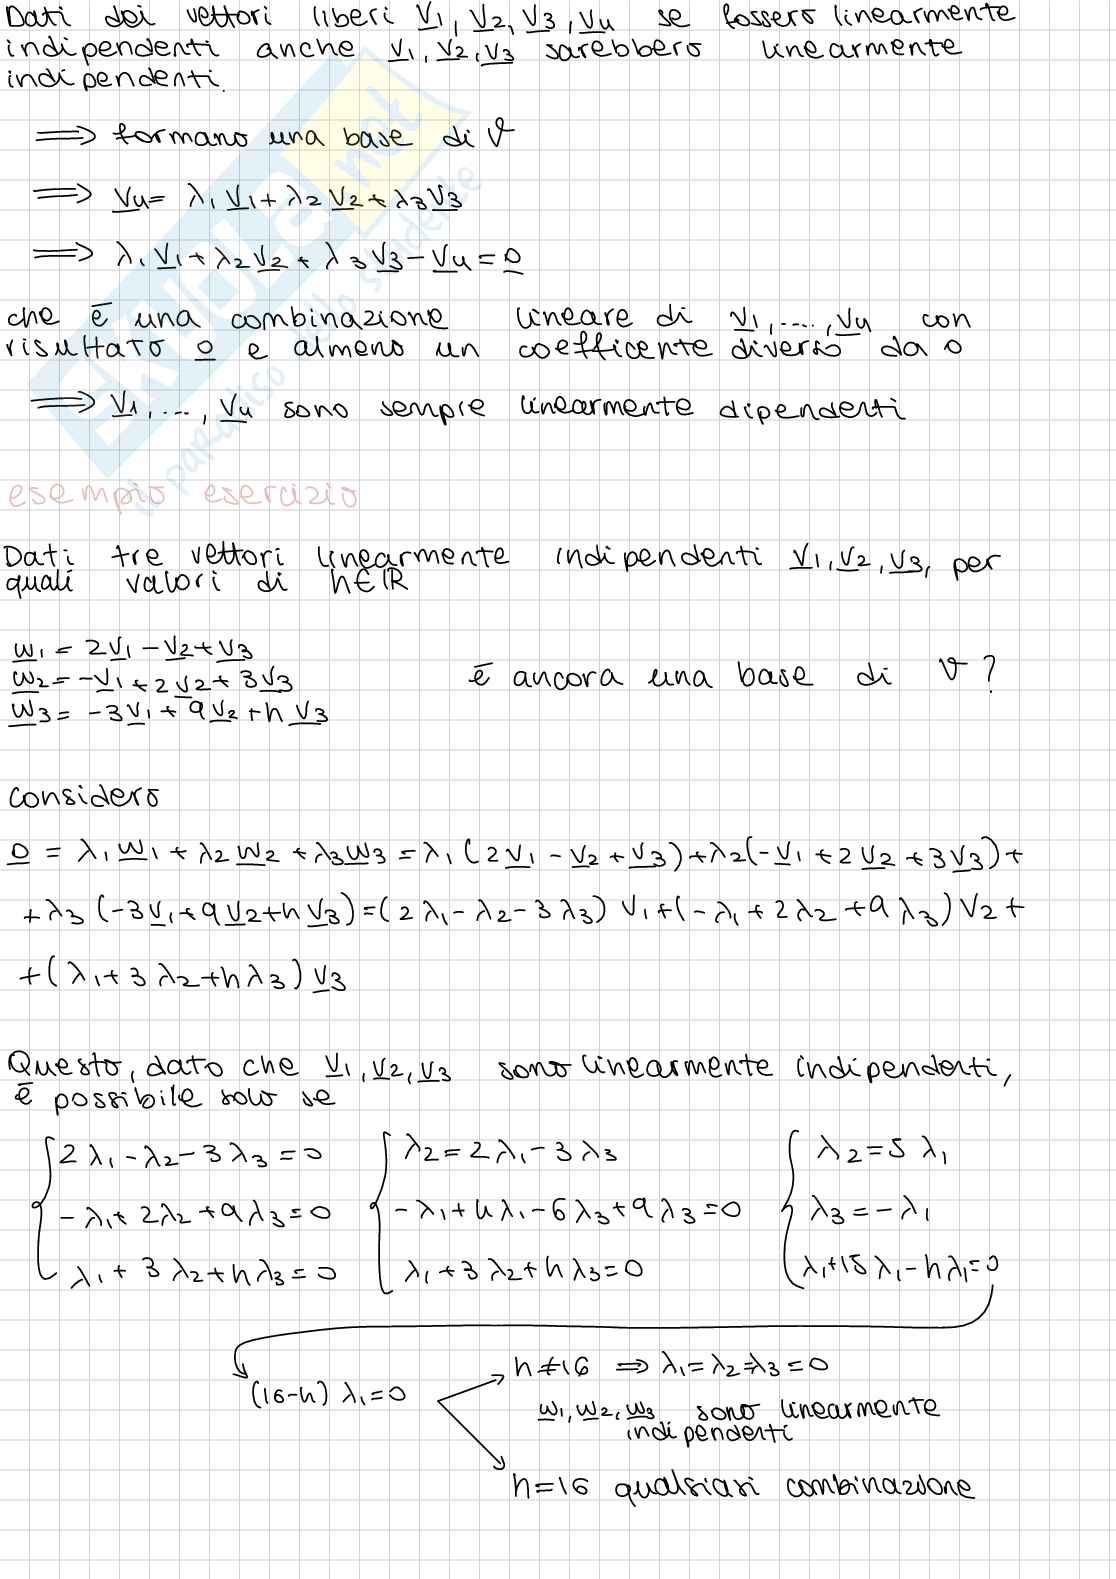 Dati dei vettori liberi v1, v2, v3, v4 se fossero linearmente
indipendenti anche v1, v2, v3 sarebbero linearmente
indipendenti.
⟹ formano una base di V
⟹ v4 = λ1 v1 + λ2 v2 + λ3 v3
⟹ λ1 v1 + λ2 v2 + λ3 v3 - v4 = 0
che è una combinazione lineare di v1, ..., v4 con
risultato 0 e almeno un coefficente diverso da 0
⟹ v1, ..., v4 sono sempre linearmente dipendenti
esempio esercizio
Dati tre vettori linearmente indipendenti v1, v2, v3, per
quali valori di h∈ℝ
w1 = 2v1 - v2 + v3
w2 = -v1 + 2v2 + 3v3 è ancora una base di V?
w3 = -3v1 + 9v2 + h v3
considero
0 = λ1 w1 + λ2 w2 + λ3 w3 = λ1 (2v1 - v2 + v3) + λ2 (-v1 + 2v2 + 3v3) +
+ λ3 (-3v1 + 9v2 + h v3) = (2λ1 - λ2 - 3λ3) v1 + (-λ1 + 2λ2 + 9λ3) v2 +
+ (λ1 + 3λ2 + hλ3) v3
Questo, dato che v1, v2, v3 sono linearmente indipendenti,
è possibile solo se
2λ1 - λ2 - 3λ3 = 0 λ2 = 2λ1 - 3λ3 λ2 = 5λ1
-λ1 + 2λ2 + 9λ3 = 0 -λ1 + 4λ1 - 6λ3 + 9λ3 = 0 λ3 = -λ1
λ1 + 3λ2 + hλ3 = 0 λ1 + 3λ2 + hλ3 = 0 λ1 + 15λ1 - hλ1 = 0
h≠16 ⟹ λ1 = λ2 = λ3 = 0
(16-h) λ1 = 0
w1, w2, w3 sono linearmente
indipendenti
h=16 qualsiasi combinazione
SKUOLA.net
il paradiso dello studente